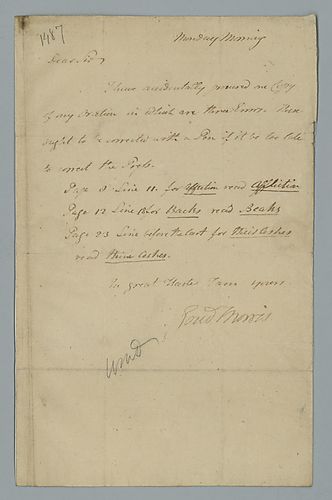 1987
Monday Morning
Dear Sir,
I have accidentally procured one Copy
of my Oration in which are three Errors. These
ought to be corrected with a Pen if it be too late
to correct the Press.
Page 8 Line 11. for affection read Affliction
Page 12 Line 13 for Backs read Beaks
Page 23 Line before the last for their ashes
read thine ashes.
In great Haste I am yours
Gouv Morris